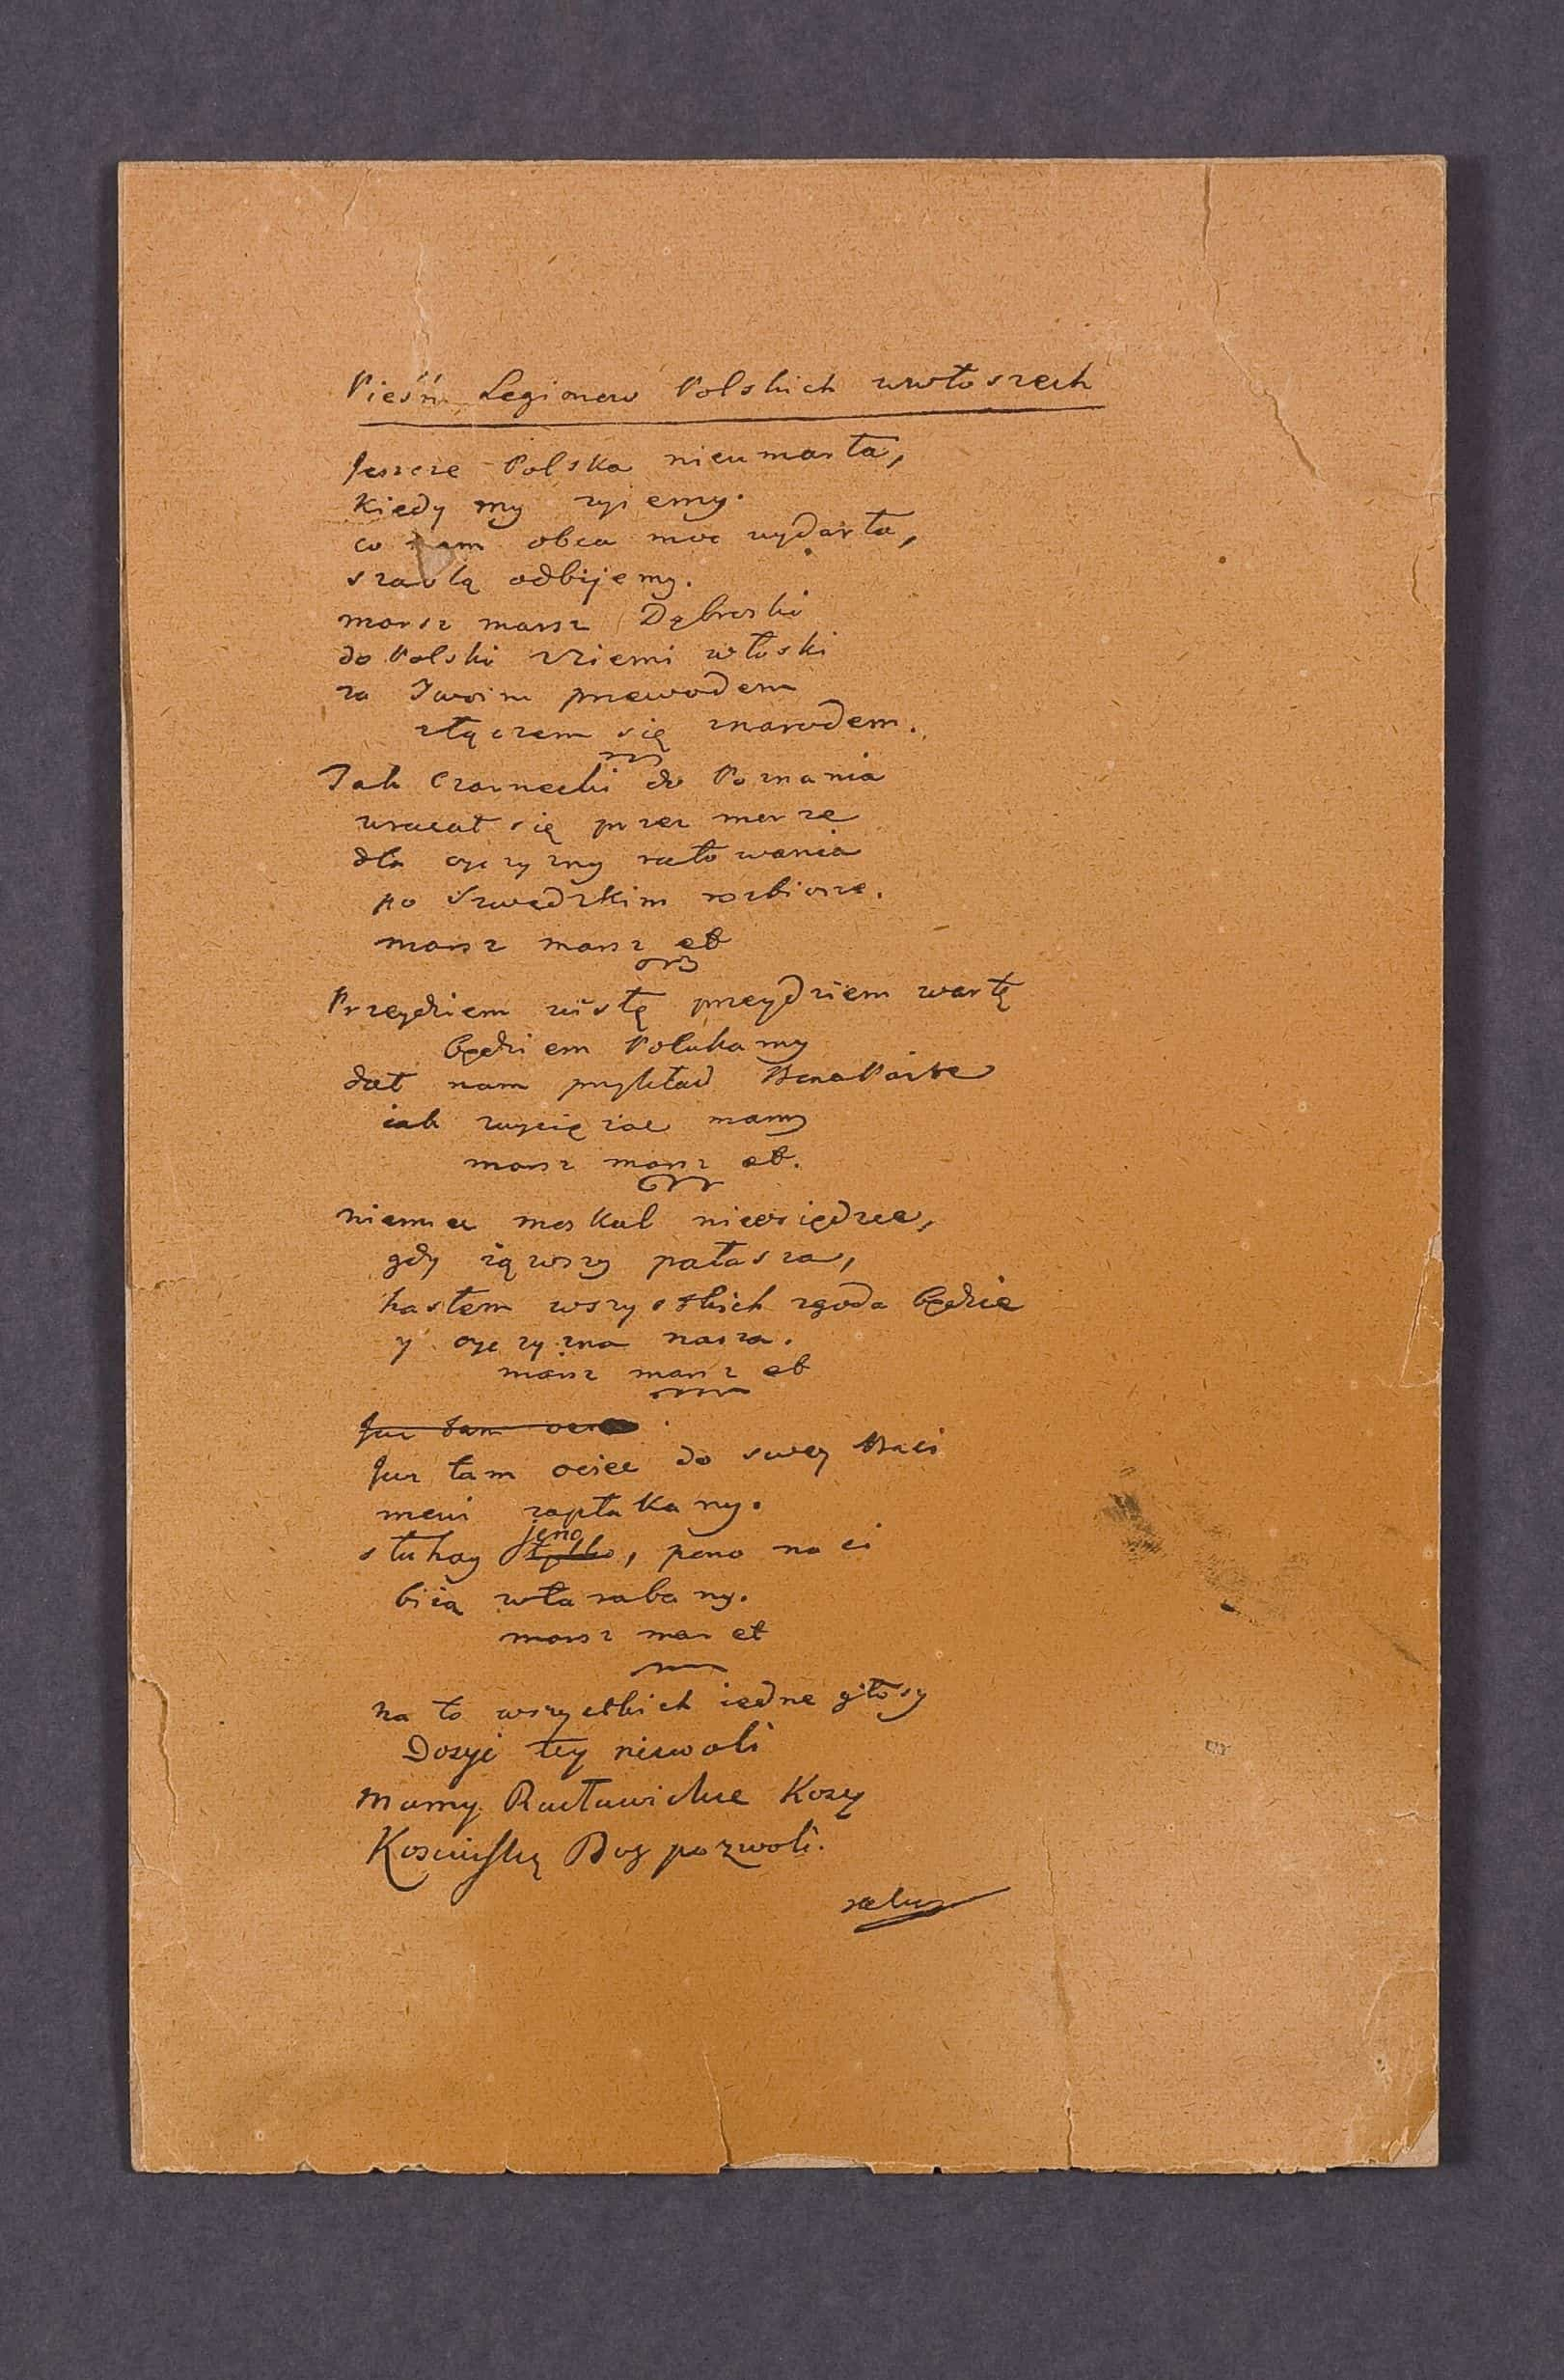 Pieśń Legionow Polskich wewłoszech
Jeszcze Polska nieumarła,
kiedy my żyjemy.
co nam obca moc wydarła,
szablą odbijemy.
marsz marsz Dąbroski
do Polski zziemi włoski
za Twoim przewodem
złączem się znarodem.
Jak Czarnecki do Poznania
wracał się przez morze
dla oyczyzny ratowania
po Szwedzkim rozbiorze.
marsz marsz et
Przeydziem wisłę przeydziem wartę
będziem Polakamy
dał nam przykład BonaParte
iak zwyciężac mamy
marsz marsz et.
niemiec moskal nieosiędzee,
gdy iąwszy pałasza,
hasłem wszystkich zgoda będzie
y oyczyzna nasza.
marsz marsz et
Juz tam
Juz tam ociec do swey Baśi
mowi zapłakany.
słuhay jeno tylko, pono nasi
biią wtarabany.
marsz mar et
na to wszystkich iedne głosy
Dosyć tey niewoli
mamy Racławickie Kosy
Kosciuszkę Bog pozwoli.